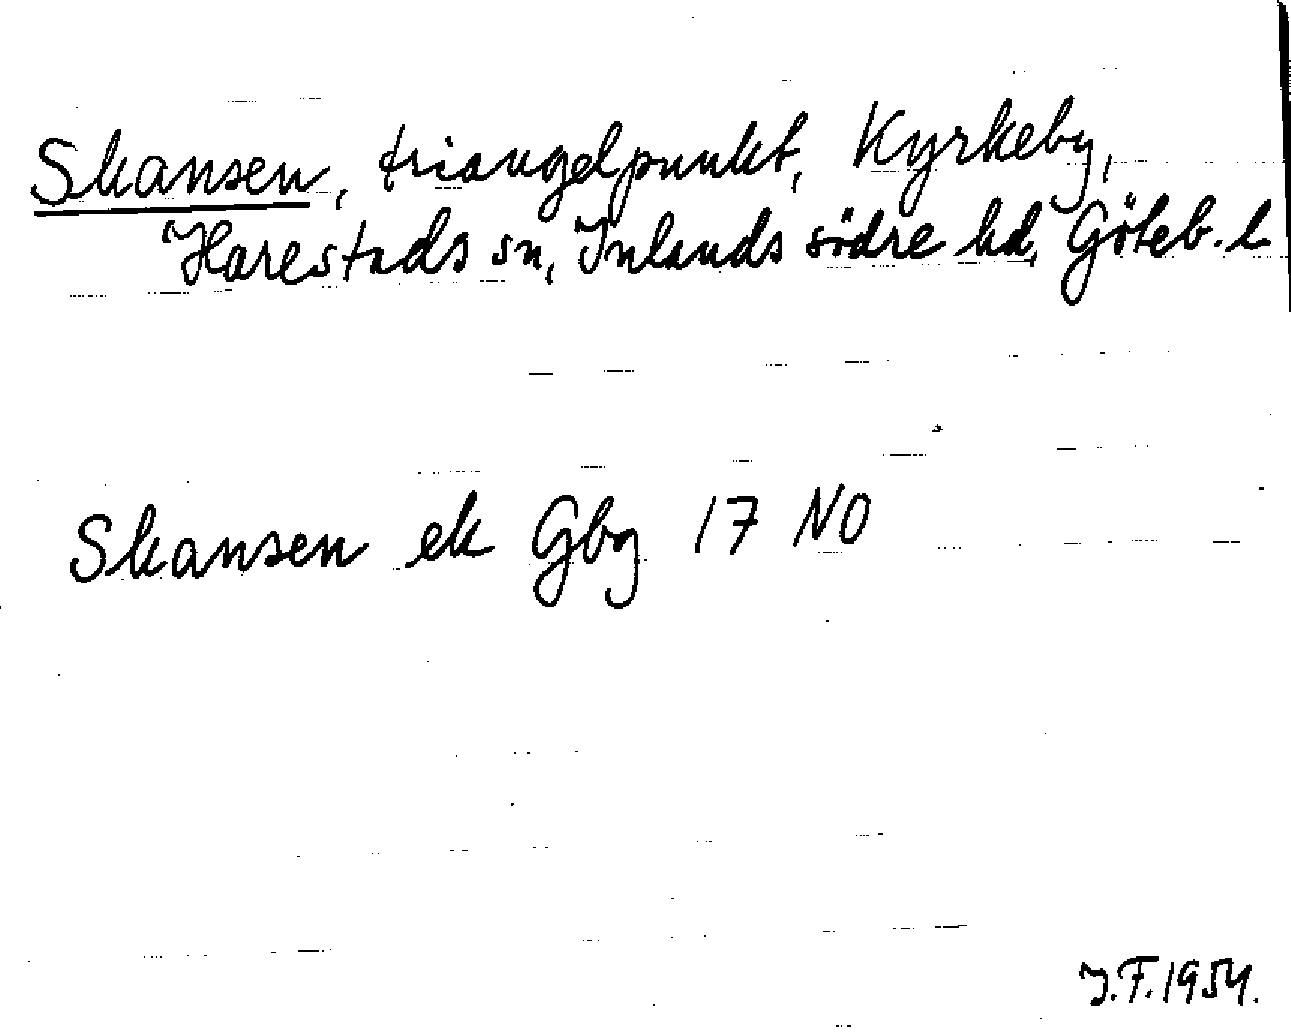 Skansen, triangelpunkt, Kyrkeby,
Harestads sn, Inlands södre hd, Göteb. l
Skansen ek Gbg 17 NO
J.F. 1954.